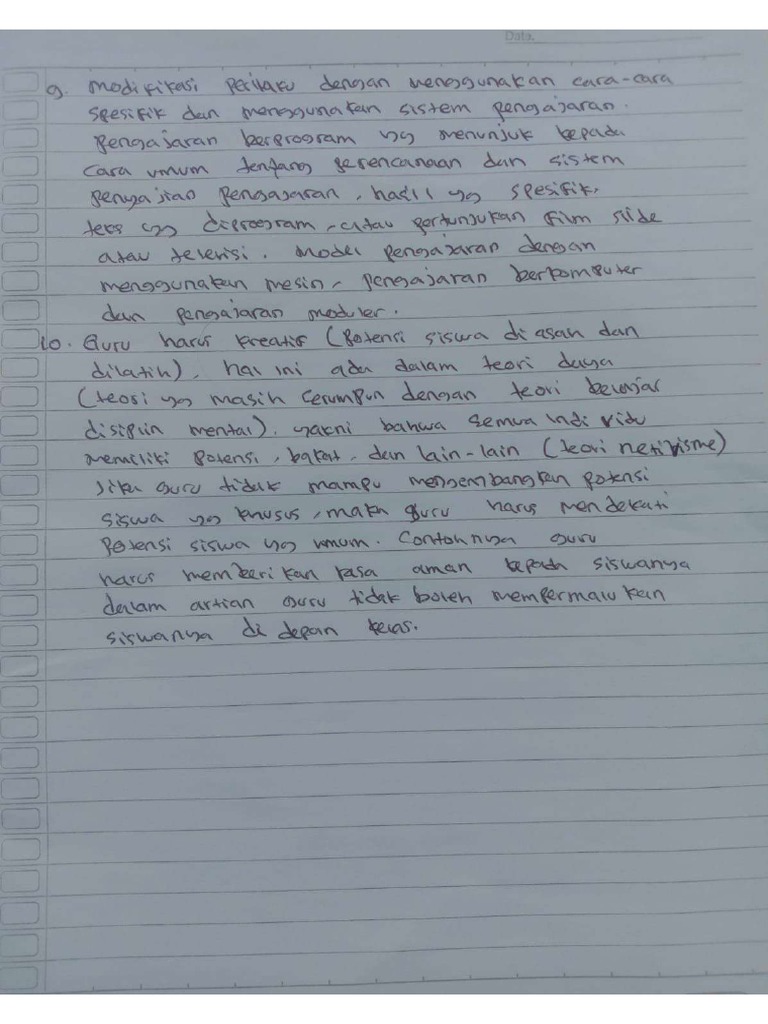 Date.
9. Modifikasi Perilaku dengan menggunakan cara-cara
spesifik dan menggunakan sistem pengajaran.
Pengajaran berprogram yg menunjuk kepada
cara umum tentang perencanaan dan sistem
penyajian pengajaran, hasil yg spesifik,
teks yg diprogram, atau pertunjukan film slide
atau televisi. Model pengajaran dengan
menggunakan mesin, pengajaran berkomputer
dan pengajaran moduler.
10. Guru harus kreatif (Potensi siswa di asah dan
dilatih), hal ini ada dalam teori daya
(teori yg masih serumpun dengan teori belajar
disiplin mental). yakni bahwa semua individu
memiliki potensi, bakat, dan lain-lain (teori netivisme)
Jika guru tidak mampu mengembangkan potensi
siswa yg khusus, maka guru harus mendekati
potensi siswa yg umum. Contohnya guru
harus memberikan rasa aman kepada siswanya
dalam artian guru tidak boleh mempermalukan
siswanya di depan kelas.